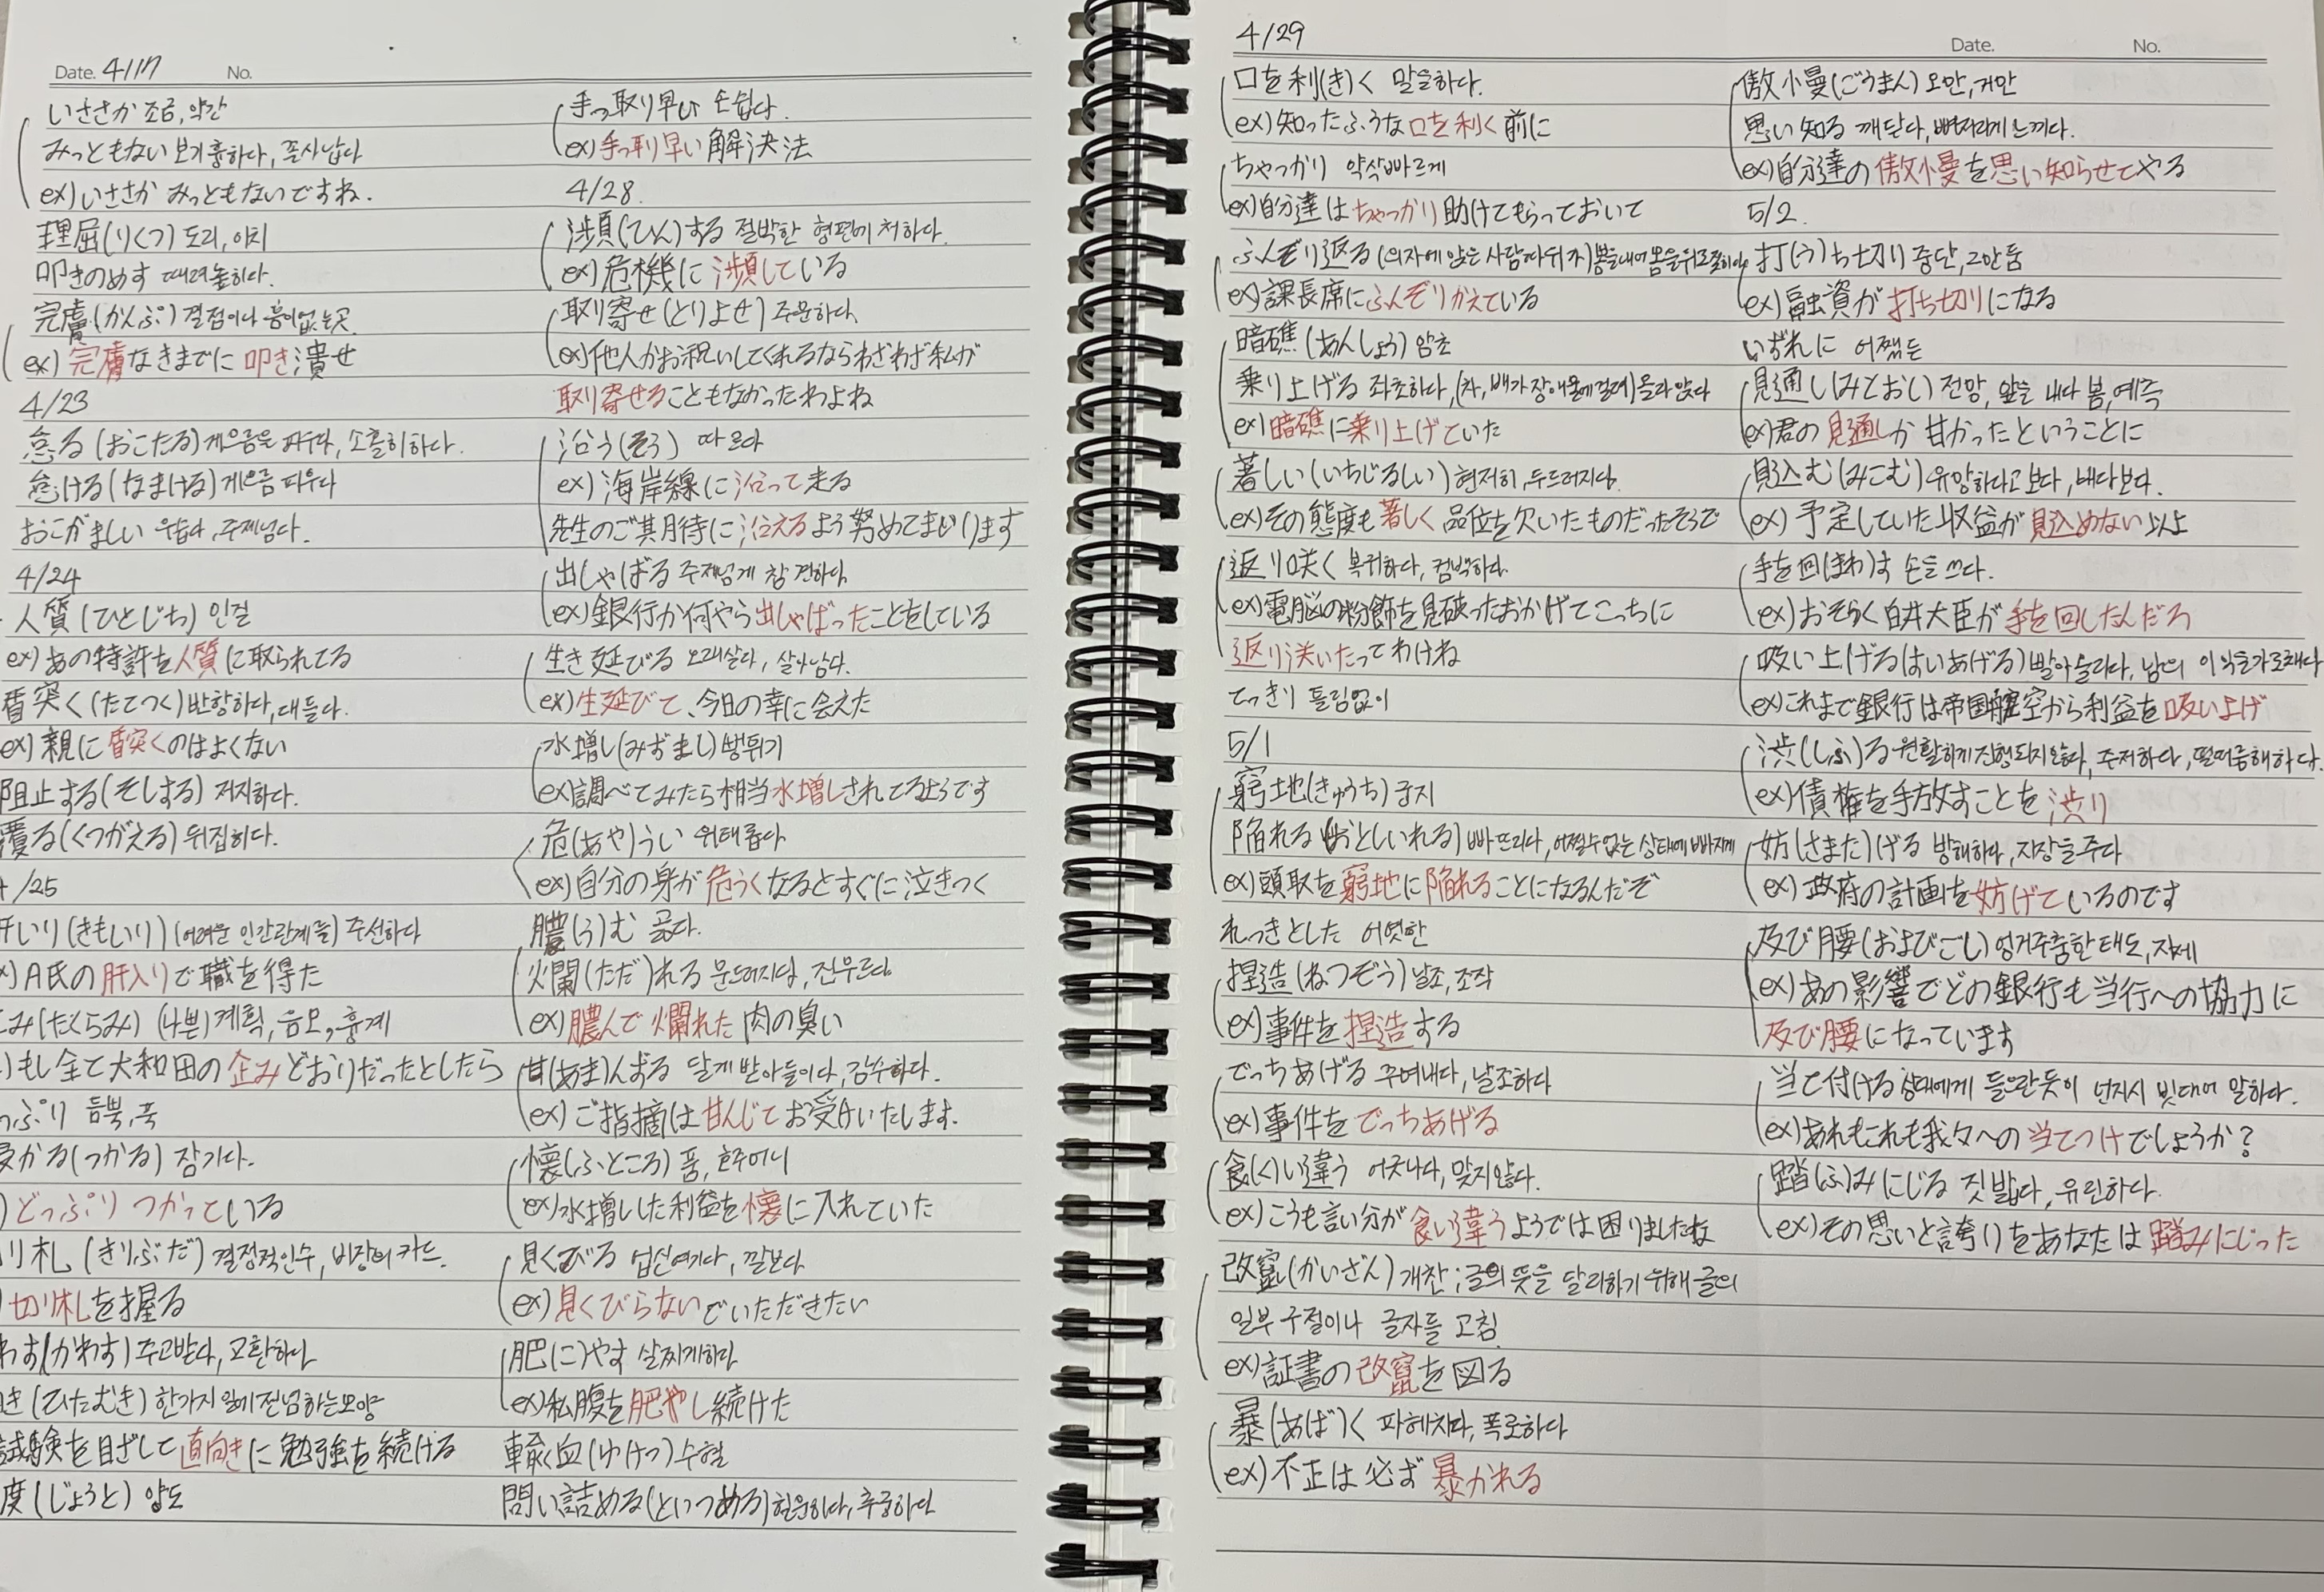 Date. 4/17 No.
いささか 조금, 약간
みっともない 보기 흉하다, 꼴사납다
ex) いささか みっともないですね.
理屈(りくつ) 도리, 이치
叩きのめす 때려눕히다.
完膚(かんぷ) 결점이나 흠이 없는 곳.
ex) 完膚なきまでに 叩き潰せ
4/23
怠る(おこたる) 게으름을 피우다, 소홀히하다.
怠ける(なまける) 게으름 피우다
おこがましい 우습다, 주제넘다.
4/24
人質(ひとじち) 인질
ex) あの特許を人質に取られてる
盾突く(たてつく) 반항하다, 대들다.
ex) 親に盾突くのはよくない
阻止する(そしする) 저지하다.
覆る(くつがえる) 뒤집히다.
/25
肝いり(きもいり) (어려운 인간관계를) 주선하다
) A氏の肝入りで職を得た
み(たくらみ) (나쁜) 계획, 음모, 흉계
) もし全て大和田の企みどおりだったとしたら
っぷり 듬뿍, 푹
かる(つかる) 잠기다.
) どっぷり つかっている
り札 (きりふだ) 결정적인수, 비장의 카드.
) 切り札を握る
わす(かわす) 주고받다, 교환하다
き(ひたむき) 한가지 일에 전념하는모양
試験を目ざして直向きに勉強を続ける
度(じょうと) 양도
手っ取り早い 손쉽다.
ex) 手っ取り早い 解決法
4/28.
渉頻(ひん)する 절박한 형편에 처하다.
ex) 危機に 渉頻している
取り寄せ(とりよせ) 주문하다.
ex) 他人がお祝いしてくれるならわざわざ私が
取り寄せることもなかったわよね
沿う(そう) 따르다
ex) 海岸線に沿って走る
先生のご期待に沿えるよう努めてまいります
出しゃばる 주제넘게 참견하다.
ex) 銀行が何やら出しゃばったことをしている
生き延びる 오래살다, 살아남다.
ex) 生延びて、今日の幸に会えた
水増し(みずまし) 뻥튀기
ex) 調べてみたら相当水増しされてるようです
危(あや)うい 위태롭다
ex) 自分の身が危うくなるとすぐに泣きつく
膿(う)む 곪다.
爛(ただ)れる 문드러지다, 진무르다.
ex) 膿んで 爛れた 肉の臭い
甘(あま)んずる 달게 받아들이다, 감수하다.
ex) ご指摘は甘んじてお受けいたします.
懐(ふところ) 품, 호주머니
ex) 水増しした利益を懐に入れていた
見くびる 업신여기다, 깔보다
ex) 見くびらないでいただきたい
肥(こ)やす 살찌게하다
ex) 私腹を肥やし続けた
輸血(ゆけつ) 수혈
問い詰める(といつめる) 힐문하다, 추궁하다
4/29
Date. No.
口を利(き)く 말을하다.
ex) 知ったふうな口を利く前に
ちゃっかり 약삭빠르게
ex) 自分達はちゃっかり助けてもらっておいて
ふんぞり返る (의자에 앉은 사람따위가)뽐을내어 몸을뒤로젖히다
ex) 課長席にふんぞりかえている
暗礁(あんしょう) 암초
乗り上げる 좌초하다, (차, 배가 장애물에 걸려)올라앉다
ex) 暗礁に乗り上げていた
著しい(いちじるしい) 현저히, 두드러지다.
ex) その態度も著しく品位を欠いたものだったそうで
返り咲く 복귀하다, 컴백하다.
ex) 電脳の粉飾を見破ったおかげでこっちに
返り咲いたってわけね
てっきり 틀림없이
5/1
窮地(きゅうち) 궁지
陥れる(おとしいれる) 빠뜨리다, 어쩔수없는 상태에 빠지게
ex) 頭取を窮地に陥れることになるんだぞ
れっきとした 어엿한
捏造(ねつぞう) 날조, 조작
ex) 事件を捏造する
でっちあげる 꾸며내다, 날조하다
ex) 事件をでっちあげる
食(く)い違う 어긋나다, 맞지않다.
ex) こうも言い分が食い違うようでは困りましたね
改竄(かいざん) 개찬; 글의 뜻을 달리하기 위해 글의
일부 구절이나 글자를 고침.
ex) 証書の改竄を図る
暴(あば)く 파헤치다, 폭로하다
ex) 不正は必ず暴かれる
傲慢(ごうまん) 오만, 거만
思い知る 깨닫다, 뼈저리게 느끼다.
ex) 自分達の傲慢を思い知らせてやる
5/2.
打(う)ち切り 중단, 그만둠
ex) 融資が打ち切りになる
いずれに 어쨌든
見通し(みとおし) 전망, 앞을 내다 봄, 예측
ex) 君の見通しが甘かったということに
見込む(みこむ) 유망하다고 보다, 내다보다.
ex) 予定していた収益が見込めない以上
手を回(まわ)す 손을 쓰다.
ex) おそらく白井大臣が手を回したんだろ
吸い上げる(はいあげる) 빨아올리다, 남의 이익을가로채다
ex) これまで銀行は帝国航空から利益を吸い上げ
渋(しぶ)る 원활하게진행되지않다, 주저하다, 떨떠름해하다.
ex) 債権を手放すことを渋り
妨(さまた)げる 방해하다, 지장을주다
ex) 政府の計画を妨げているのです
及び腰(およびごし) 엉거주춤한태도, 자세
ex) あの影響でどの銀行も当行への協力に
及び腰になっています
当て付ける 상대에게 들으란듯이 넌지시 빗대어 말하다.
ex) あれもこれも我々への当てつけでしょうか?
踏(ふ)みにじる 짓밟다, 유린하다.
ex) その思いと誇りをあなたは踏みにじった